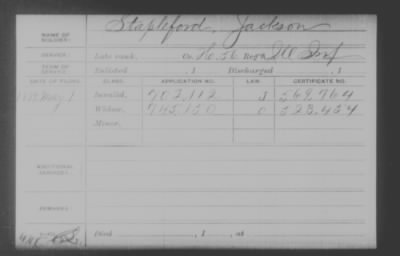 NAME OF SOLDIER: Stapleford, Jackson
SERVICE: Late rank, Co. H, 56 Reg't Ill Inf
TERM OF SERVICE: Enlisted , 1 Discharged , 1
DATE OF FILING. CLASS. APPLICATION NO. LAW. CERTIFICATE NO.
May 1 Invalid, 702,112 J 569,764
Widow, 745,150 523,454
Minor,
ADDITIONAL SERVICES:
REMARKS:
Died , 1 , at